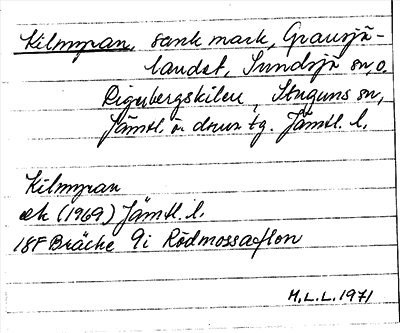 Kilmyran, sank mark, Gransjö-
landet, Sundsjö sn, o.
Digerbergskilen, Stuguns sn,
Jämtl. ö. domsg. Jämtl. l.
Kilmyran
ek (1969) Jämtl. l.
18F Bräcke 9i Rödmossaflon
M.L.L. 1971